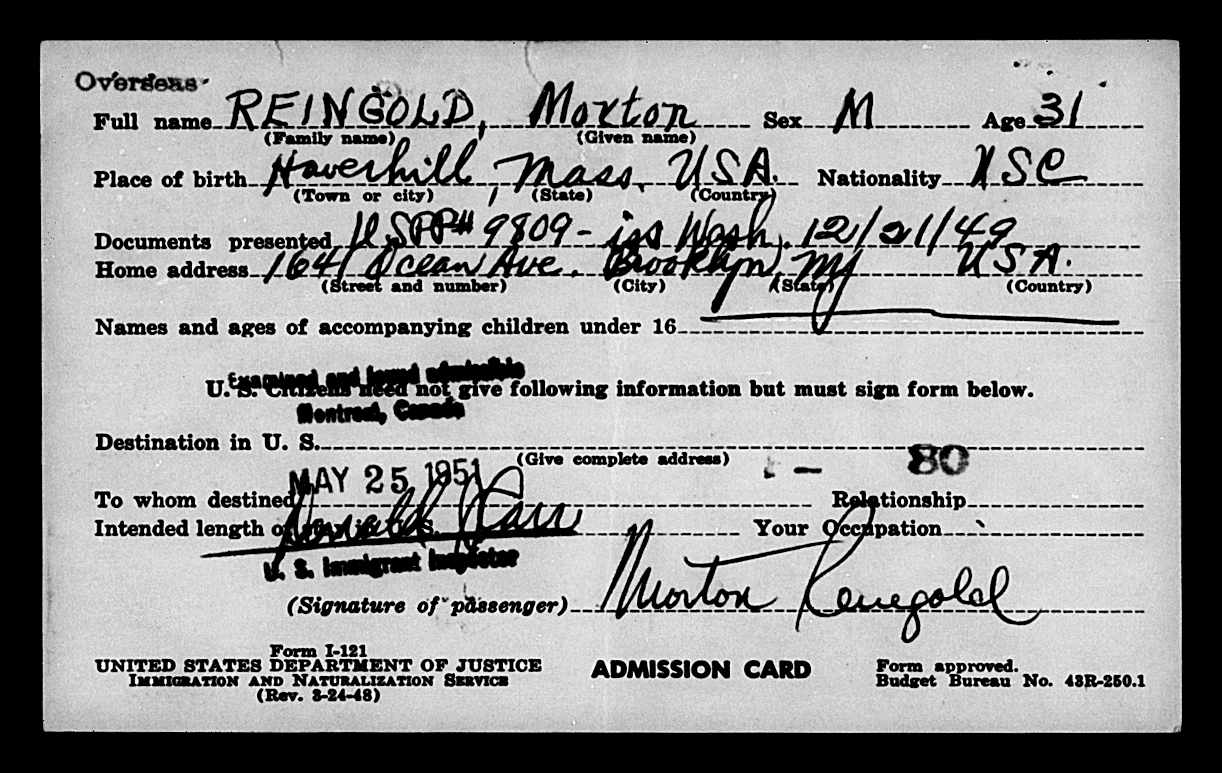 Overseas
Full name REINGOLD, Morton Sex M Age 31
(Family name) (Given name)
Place of birth Haverhill, Mass. USA. Nationality USC
(Town or city) (State) (Country)
Documents presented USPP# 9809 - iss Wash. 12/21/49
Home address 1641 Ocean Ave. Brooklyn, NY USA.
(Street and number) (City) (State) (Country)
Names and ages of accompanying children under 16
Examined and found admissible
U. S. Citizens need not give following information but must sign form below.
Montreal, Canada
Destination in U. S.
(Give complete address) - 80
MAY 25 1951
To whom destined Relationship
Intended length of stay in U. S. Your Occupation
U. S. Immigrant Inspector
(Signature of passenger) Morton Reingold
Form I-121
UNITED STATES DEPARTMENT OF JUSTICE
IMMIGRATION AND NATURALIZATION SERVICE
(Rev. 3-24-48)
ADMISSION CARD
Form approved.
Budget Bureau No. 43R-250.1